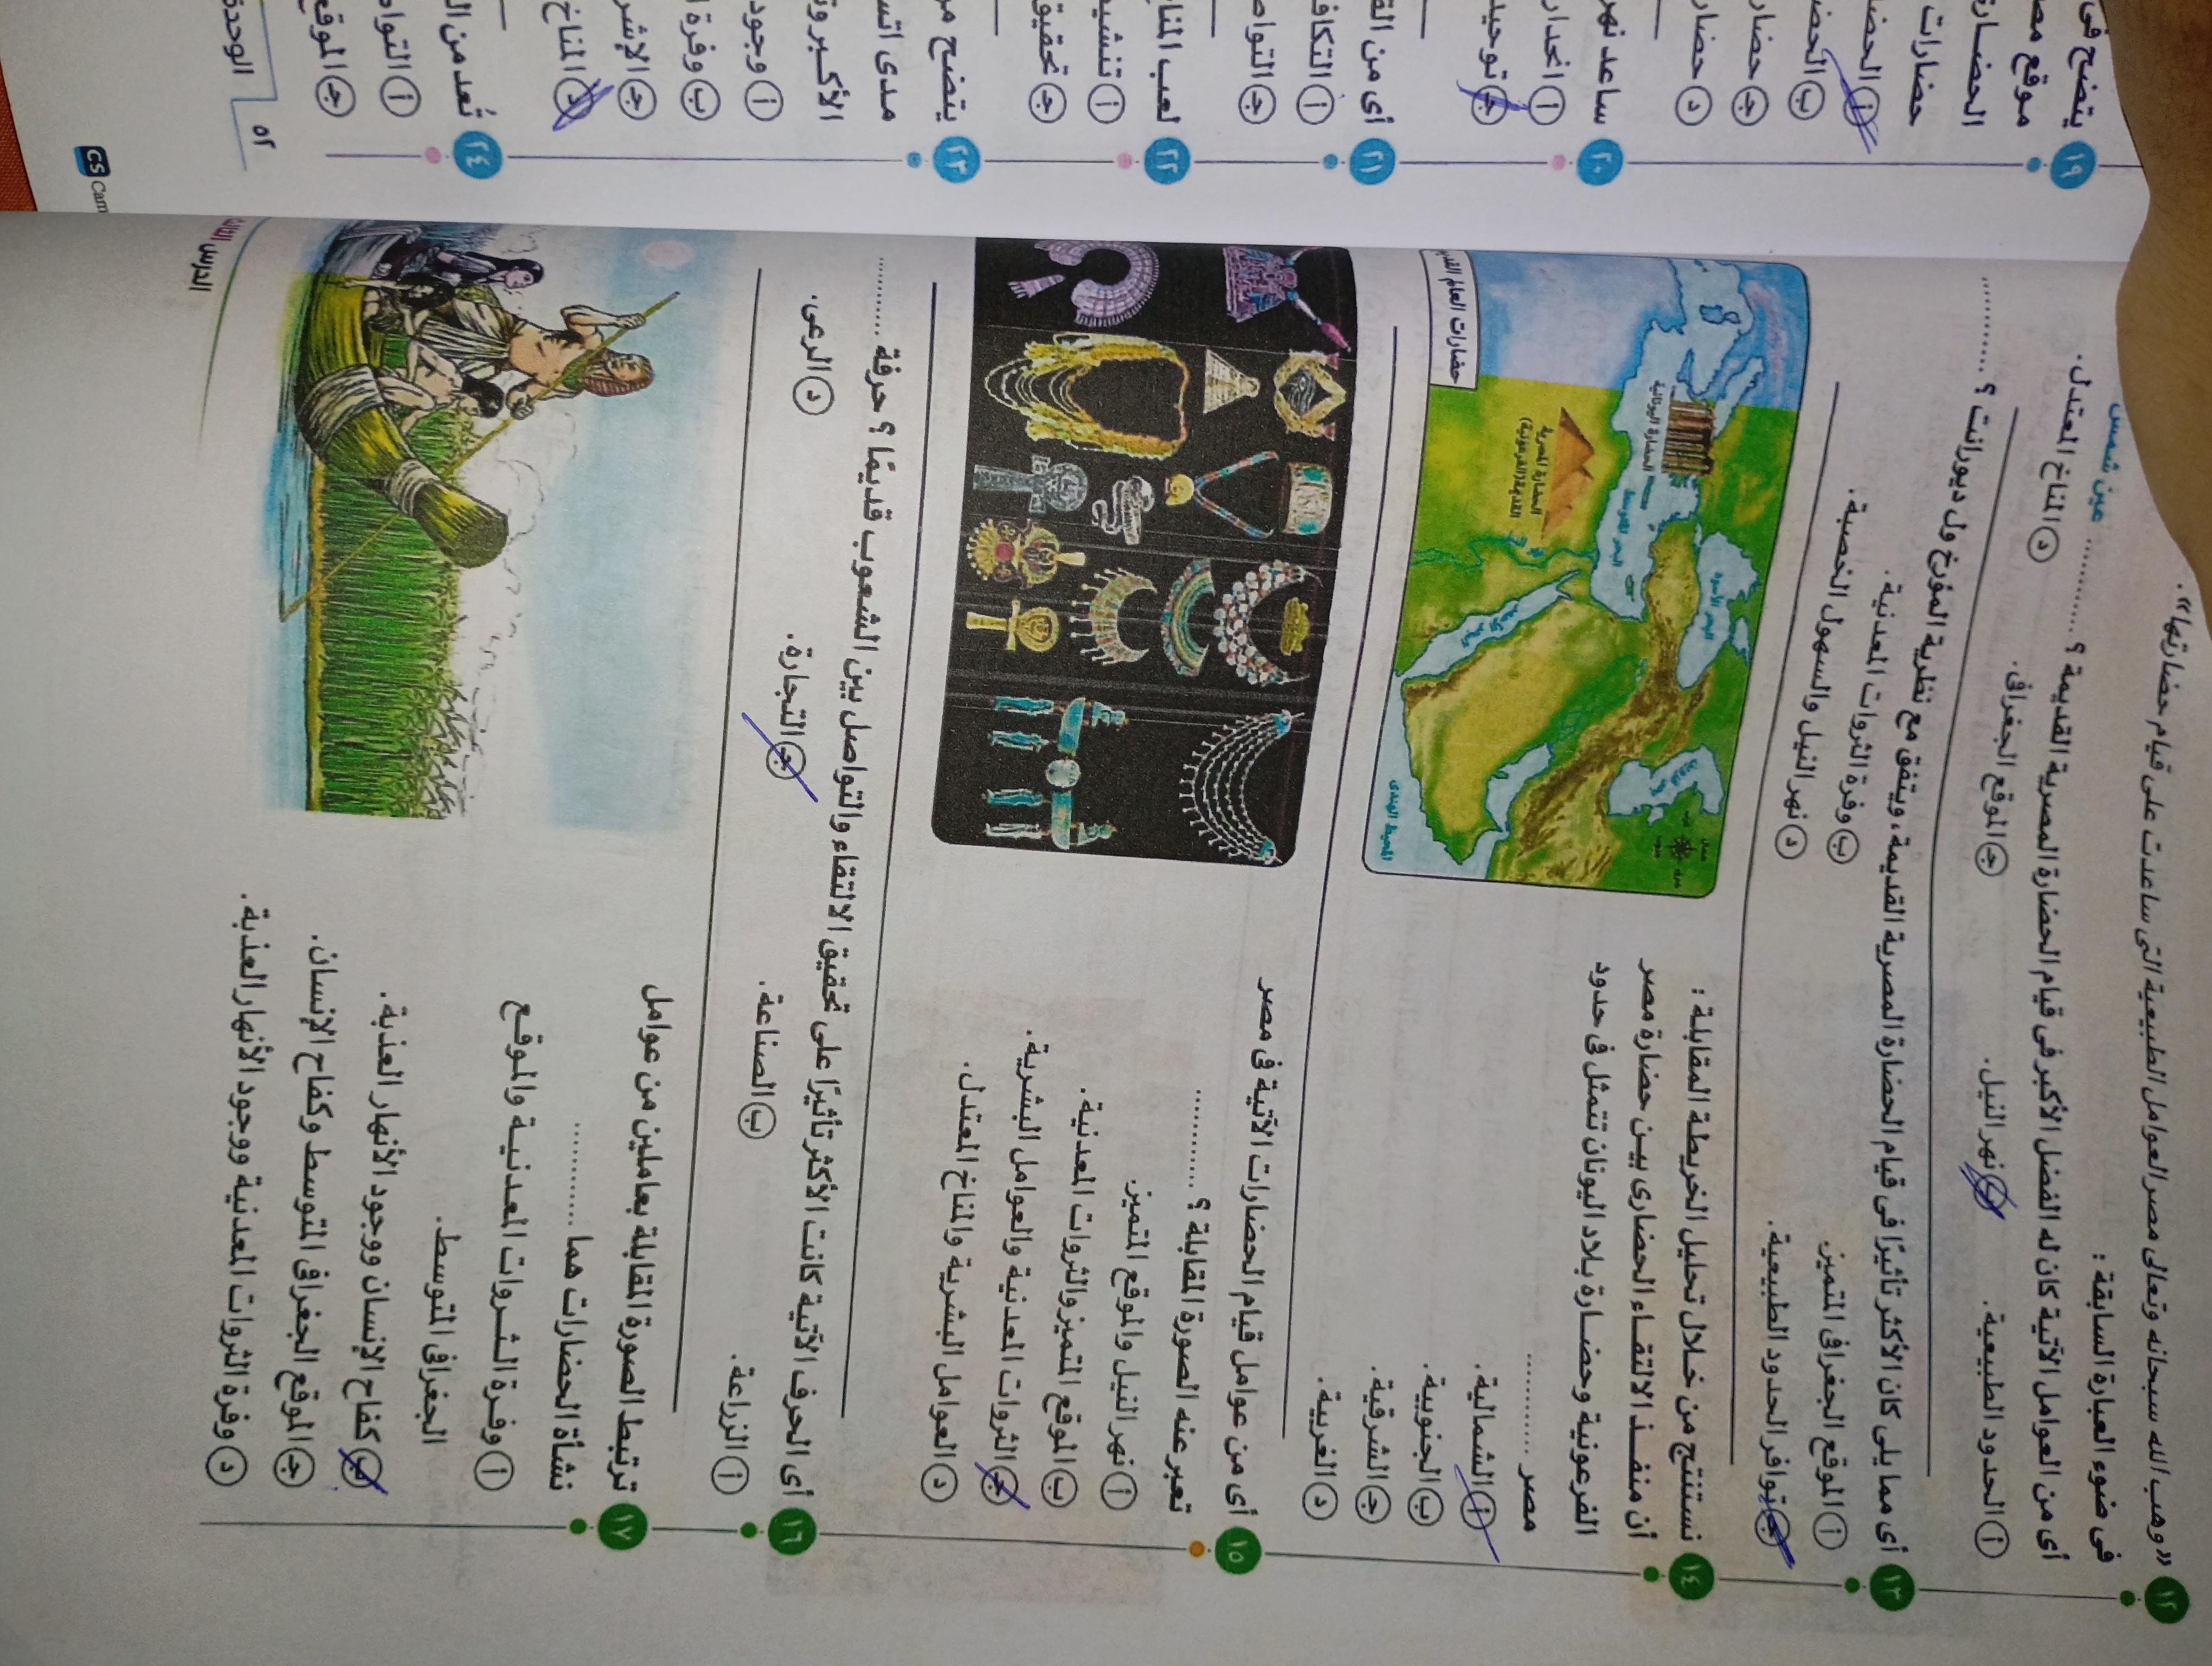 ١٢ «وهب الله سبحانه وتعالى مصر العوامل الطبيعية التى ساعدت على قيام حضارتها».
فى ضوء العبارة السابقة :
أى من العوامل الآتية كان له الفضل الأكبر فى قيام الحضارة المصرية القديمة ؟ .......... عين شمس
أ الحدود الطبيعية.
ب نهر النيل.
ج الموقع الجغرافى.
د المناخ المعتدل.
١٣ أى مما يلى كان الأكثر تأثيرًا فى قيام الحضارة المصرية القديمة، ويتفق مع نظرية المؤرخ ول ديورانت ؟ ..........
أ الموقع الجغرافى المتميز.
ب وفرة الثروات المعدنية.
ج توافر الحدود الطبيعية.
د نهر النيل والسهول الخصبة.
١٤ نستنتج من خلال تحليل الخريطة المقابلة :
أن منفذ الالتقاء الحضارى بين حضارة مصر
الفرعونية وحضارة بلاد اليونان تتمثل فى حدود
مصر ..........
أ الشمالية.
ب الجنوبية.
ج الشرقية.
د الغربية.
شمال
شرق
جنوب
غرب
البحر الأسود
الحضارة اليونانية
البحر المتوسط
الحضارة المصرية
القديمة (الفرعونية)
المحيط الهندى
حضارات العالم
١٥ أى من عوامل قيام الحضارات الآتية فى مصر
تعبر عنه الصورة المقابلة ؟ ..........
أ نهر النيل والموقع المتميز.
ب الموقع المتميز والثروات المعدنية.
ج الثروات المعدنية والعوامل البشرية.
د العوامل البشرية والمناخ المعتدل.
١٦ أى الحرف الآتية كانت الأكثر تأثيرًا على تحقيق الالتقاء والتواصل بين الشعوب قديمًا ؟ حرفة ..........
أ الزراعة.
ب الصناعة.
ج التجارة.
د الرعى.
١٧ ترتبط الصورة المقابلة بعاملين من عوامل
نشأة الحضارات هما ..........
أ وفرة الثروات المعدنية والموقع
الجغرافى المتوسط.
ب كفاح الإنسان ووجود الأنهار العذبة.
ج الموقع الجغرافى المتوسط وكفاح الإنسان.
د وفرة الثروات المعدنية ووجود الأنهار العذبة.
الدرس
١٩ يتضح فى
موقع
حضارات
أ
ب
ج
د
٢٠ ساعد نهر
أ
ج توحيد
٢١ أى من
أ
ج
٢٢ لعب
أ
ج تحقيق
٢٣ يتضح
مدى
الأكبر
أ وجود
ب وفرة
ج
د المناخ
٢٤ تُعد من
أ
ج الموقع
٥٢ الوحدة
CS Cam